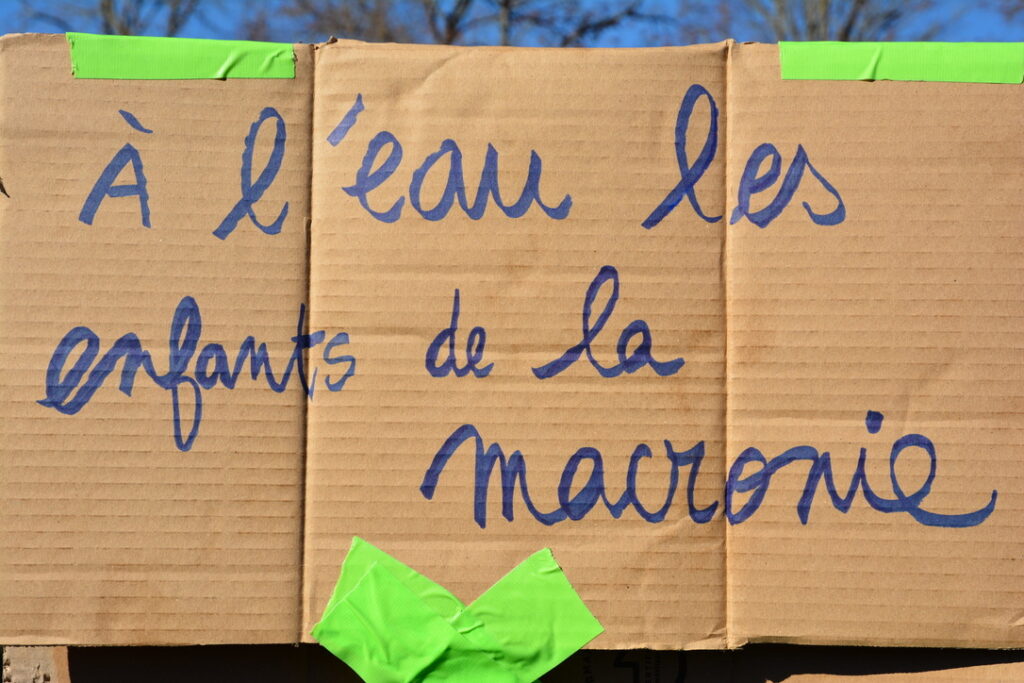 À l'eau les
enfants de la
macronie